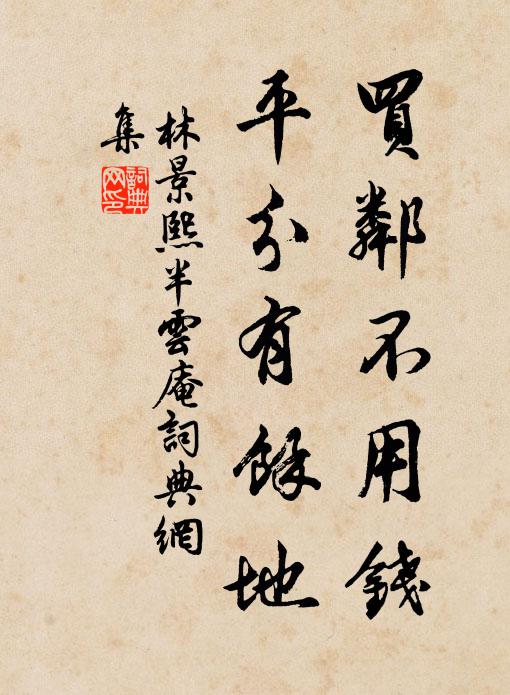 買鄰不用錢
平分有餘地
林景熙半雲庵詞典網
集
詞典
网印